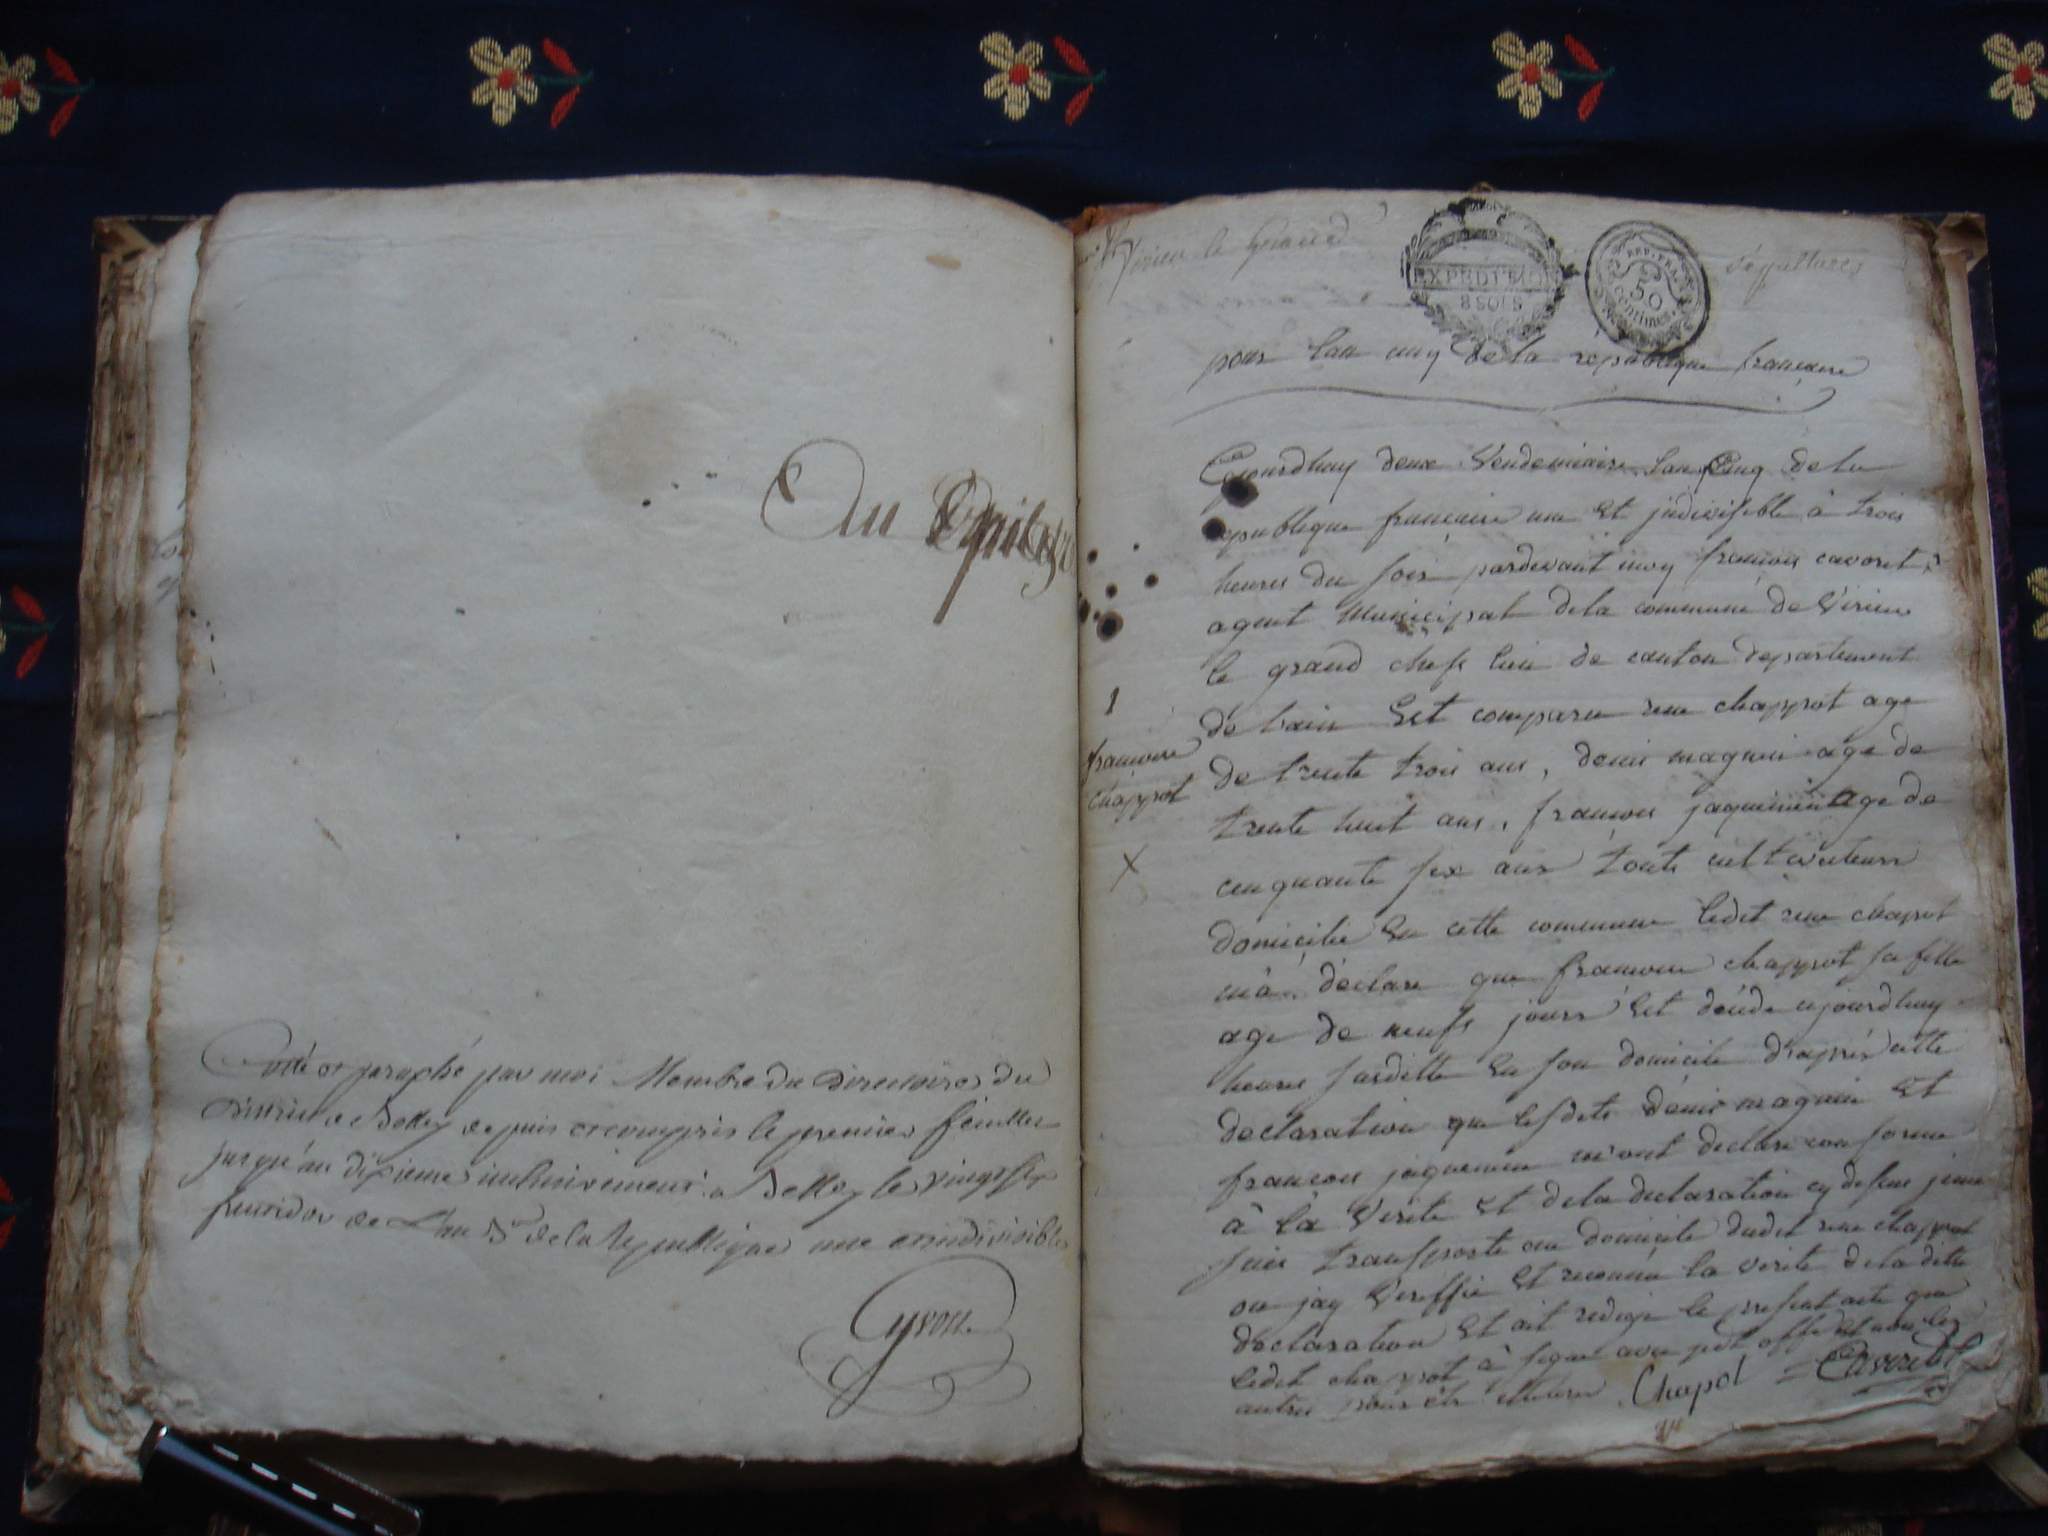 Du
Cotté et paraphé par moi Membre du directoire du
District de Belley depuis et compris le premier feuillet
jusqu'au dixieme inclusivement a Belley le vingt six
fructidor de L'an de la Republique une et indivisible
Gyvon
Virieu le Grand
sépultures
EXPEDITION
8 SOLS
REP. FRA.
50
centimes.
pour lan cinq de la republique francaise
Cejourdhuy deux Vendemiaire lan Cinq de la
republique francaise une Et jndivisible à trois
heures du soir pardevant moy francois cavoret
agent Municipal dela commune de Virieu
le grand chefs lieu de canton departement
de lain Est comparu rene chapprot age
de trente trois ans, denis magnin age de
trente huit ans, francois jaquemin age de
cinquante six ans touts cultivateurs
domicilié En cette commune ledit rene chaprot
m'a declare que francoise chapprot sa fille
age de neufs jours Est décéde cejourdhuy
heures susditte En son domicile d'après cette
declaration que lesdits denis magnin Et
francois jaquemin m'ont declare conforme
à la Verite Et dela declaration cy dessus je me
suis transporte au domicile dudit rene chapprot
ou jay Veriffié Et reconnu la verite dela ditte
declaration Et ait redigé le present acte que
ledit chaprot à signé avec offi Et non les
autres pour être illitere Chapot = Cavoret
1
francoise
chapprot
X